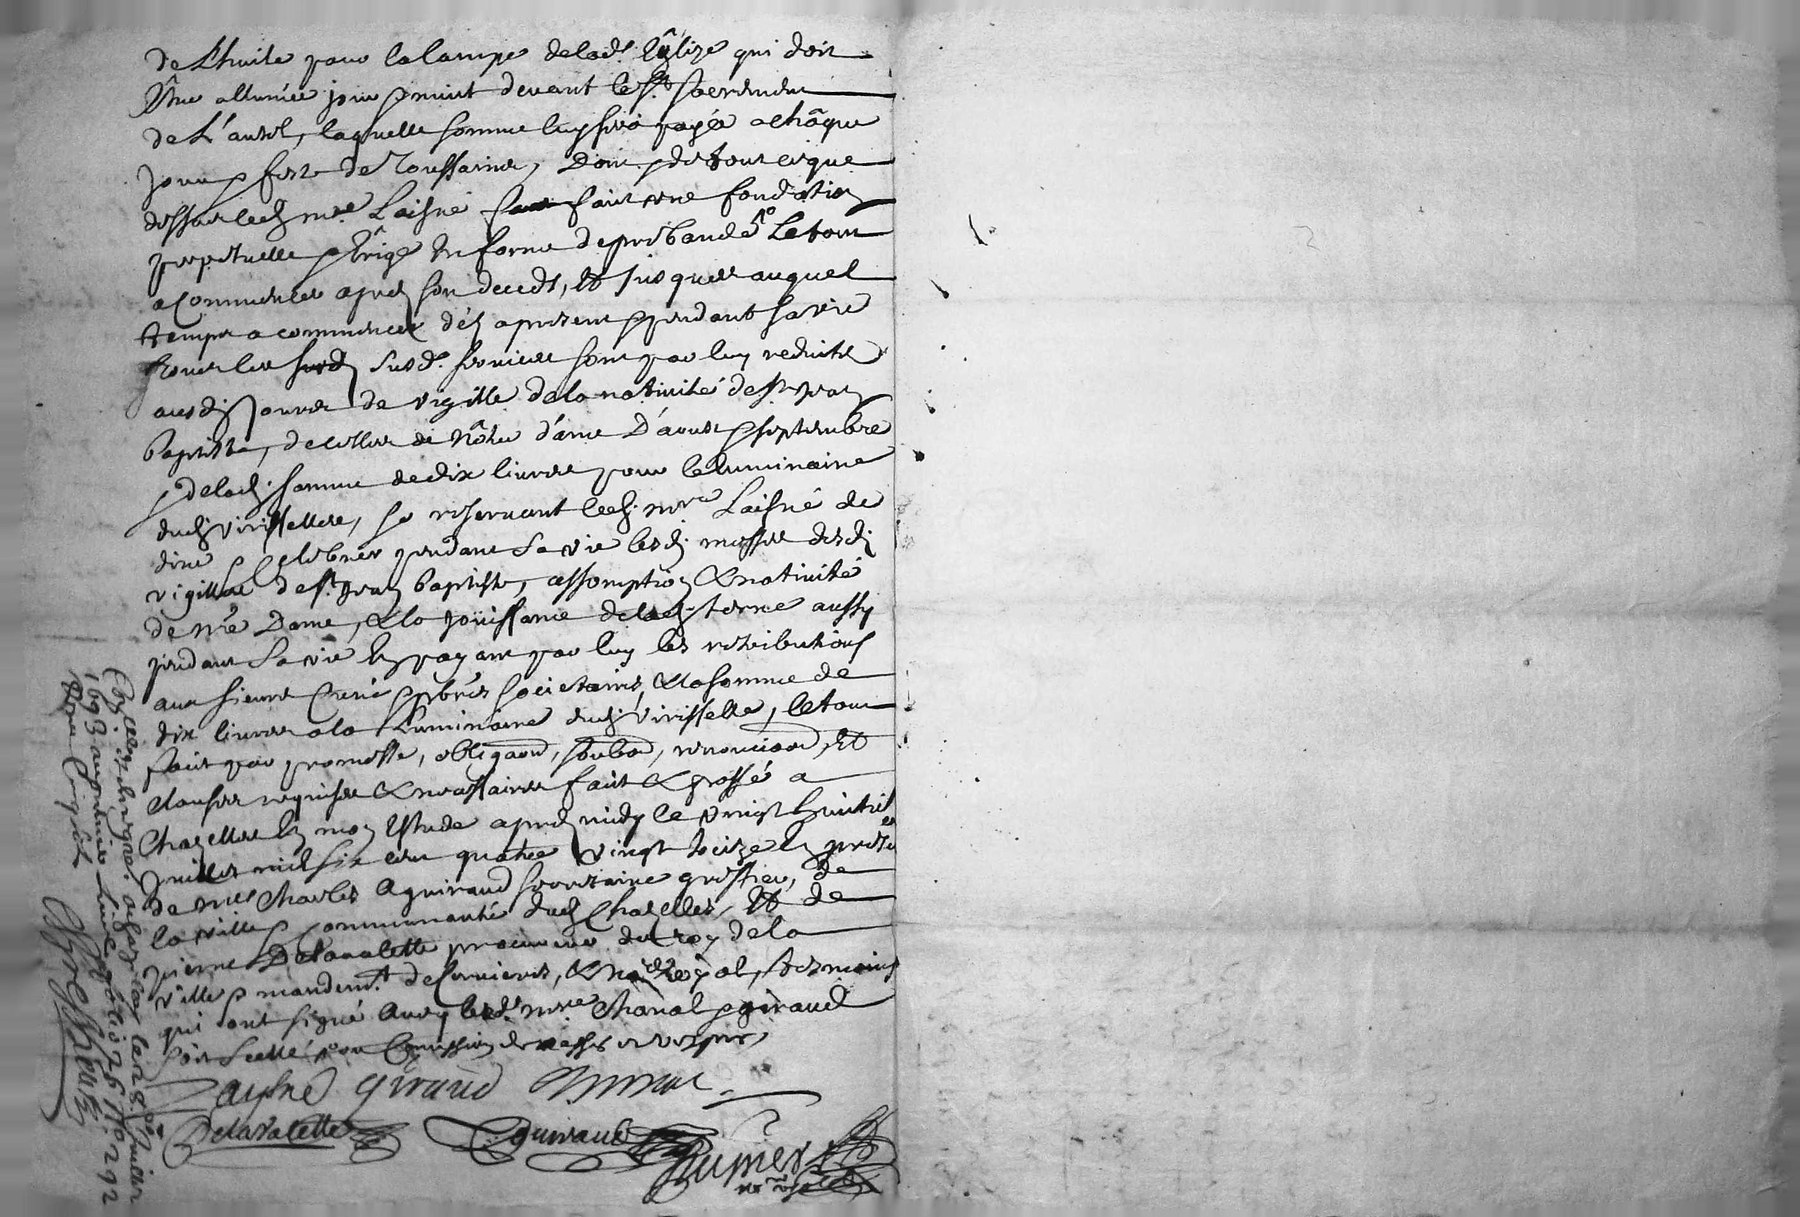 de L'huile pour la lampe de lad. Eglize qui doit
Estre allumée jour & nuit devant le St. Sacrement
de L'autel, laquelle somme luy sera payée a châque
jour & feste de Toussaints, Donc & de tout ce que
dessus led. mre. Laisné fait une fondation
perpetuelle & Erigé En forme de prebande Le tout
a Commencer apres son deceds, Et jusques auquel
temps a commencer dés a present & pendant sa vie
Tous les susd. services sont par luy reduits
ausd. jours de vigille de la nativité de St. Jean
baptiste, de celles de Nôtre dâme D'aoust & septembre
& de lad. somme de dix livres pour le Luminaire
dud. Virisselle, se reservant led. mre Laisné de
dire & Celebrer pendant sa vie lesd. messes desd.
vigilles de St. Jean baptiste, assomption & nativité
de nre Dame, & la jouissance de lad. terre aussy
pendant sa vie En payant par luy les retributions
aux sieurs Curé & pbres societaires, & la somme de
dix livres a la Luminaire dud. Virisselle, le tout
fait par promesse, obligaon, soubon, renonciaon, Et
clauses requises & necessaires fait & passé a
Chazelles En mon Estude apres midy le vingt huitie
juillet mil six cens quatre vingt treize En presen
de mes Charles Aguiraud secretaire greffier, de
la ville & communauté dud. Chazelles, Et de
pierre Delavalette procureur du Roy de la
ville & mandemt. de & nore Royal, tesmoins
qui ont signé Avec lesd. mre Chanal & giraud
soit scellé
Layné Giraud
Delavalette Aguiraud

1693 folio 26 No. 292